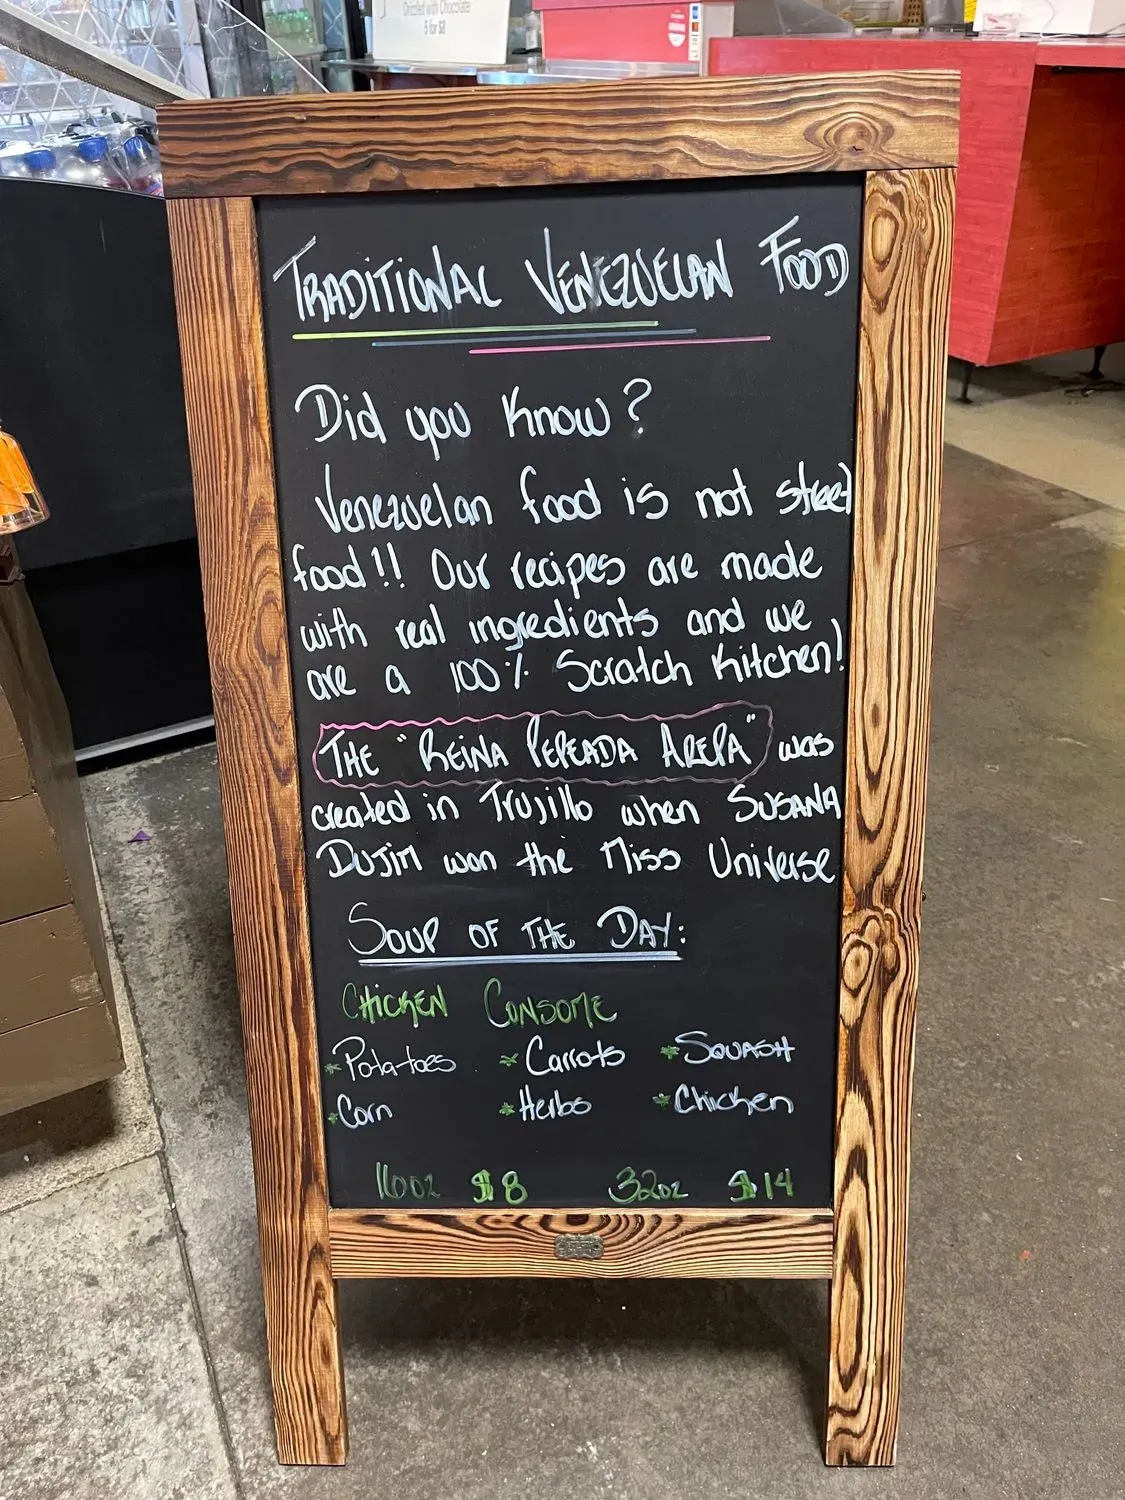 Drizzled with Chocolate
5 for $8
TRADITIONAL VENEZUELAN FOOD
Did you Know?
Venezuelan food is not street
food!! Our recipes are made
with real ingredients and we
are a 100% Scratch Kitchen!
THE "REINA PEPEADA AREPA" was
created in Trujillo when SUSANA
DUJIM won the Miss Universe
SOUP OF THE DAY:
CHICKEN CONSOME
*Potatoes *Carrots *SQUASH
*Corn *Herbs *Chicken
16oz $8 32oz $14